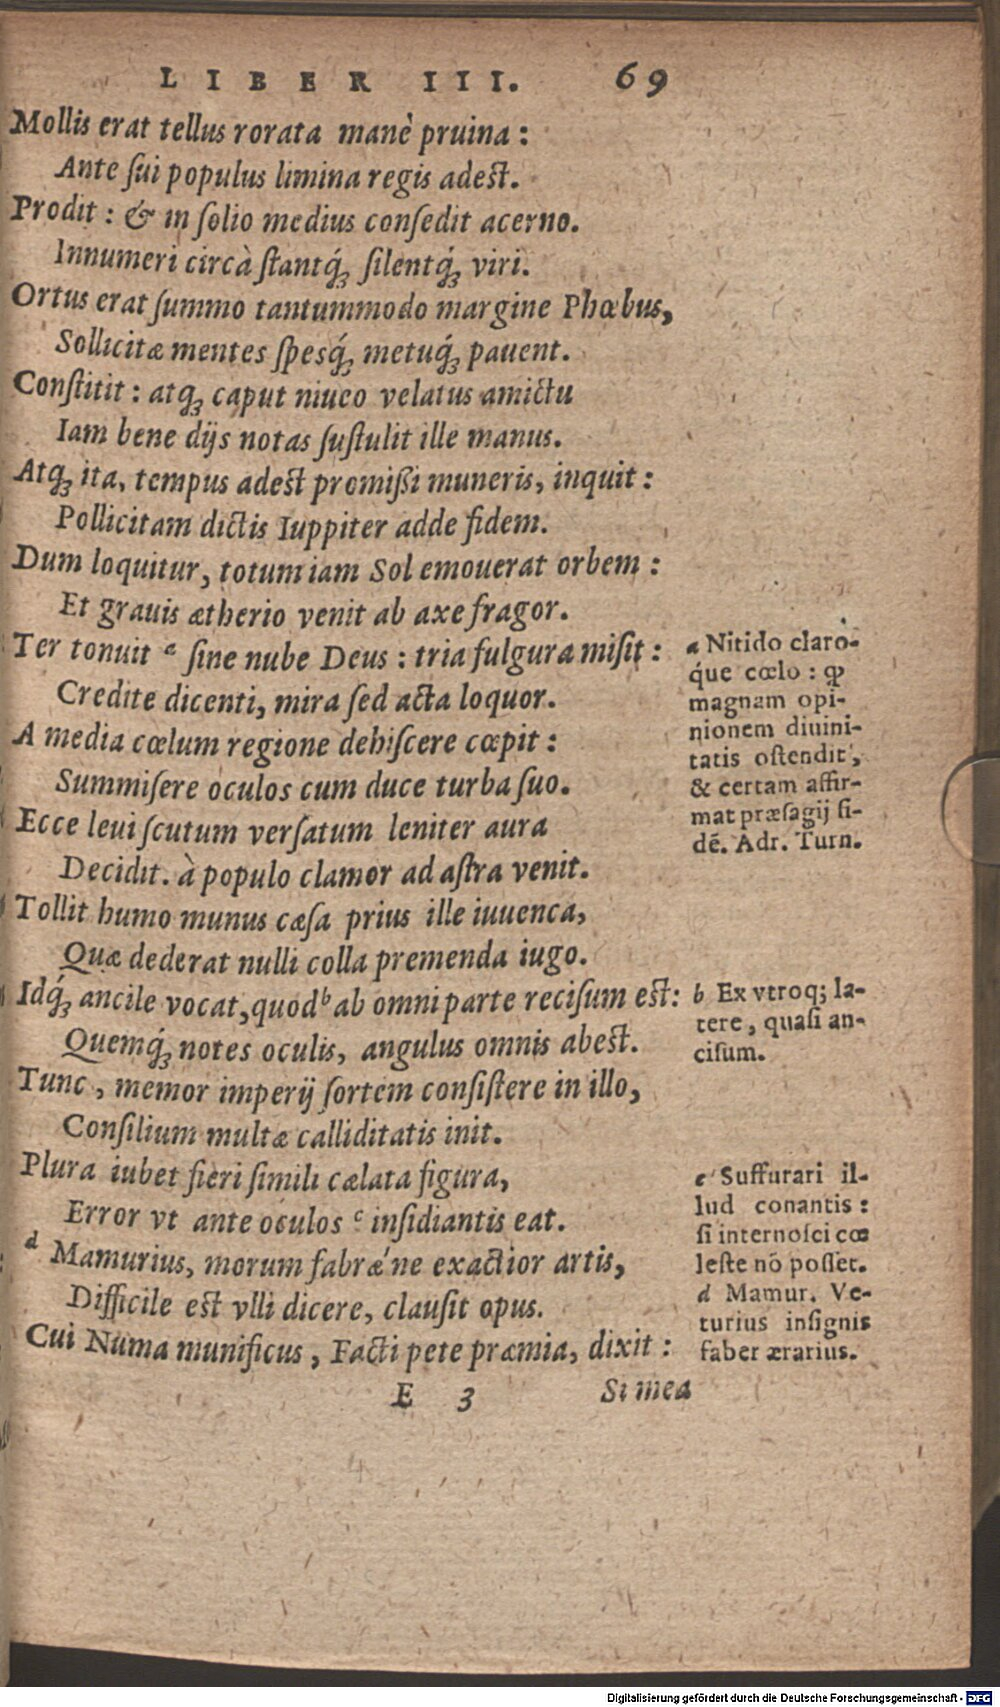 LIBER III. 69
Mollis erat tellus rorata manè pruina :
Ante ſui populus limina regis adest.
Prodit : & in ſolio medius conſedit acerno.
Innumeri circà ſtantq́ꝫ ſilentq́ꝫ viri.
Ortus erat ſummo tantummodo margine Phœbus,
Sollicitæ mentes ſpesq́ꝫ metuq́ꝫ pauent.
Conſtitit : atqꝫ caput niueo velatus amictu
Iam bene dijs notas ſuſtulit ille manus.
Atqꝫ ita, tempus adest promißi muneris, inquit :
Pollicitam dictis Iuppiter adde fidem.
Dum loquitur, totum iam Sol emouerat orbem :
Et grauis ætherio venit ab axe fragor.
Ter tonuit a ſine nube Deus : tria fulgura miſit :
Credite dicenti, mira ſed acta loquor.
A media cœlum regione dehiſcere cœpit :
Summiſere oculos cum duce turba ſuo.
Ecce leui ſcutum verſatum leniter aura
Decidit. à populo clamor ad aſtra venit.
Tollit humo munus cæſa prius ille iuuenca,
Quæ dederat nulli colla premenda iugo.
Idq́ꝫ ancile vocat, quod b ab omni parte reciſum est :
Quemq́ꝫ notes oculis, angulus omnis abest.
Tunc, memor imperij ſortem conſiſtere in illo,
Conſilium multæ calliditatis init.
Plura iubet fieri ſimili cælata figura,
Error vt ante oculos c inſidiantis eat.
d Mamurius, morum fabræ'ne exactior artis,
Difficile est vlli dicere, clauſit opus.
Cui Numa munificus, Facti pete præmia, dixit :
E 3 Si mea
a Nitido claro-
q́ue cœlo : ꝙ
magnam opi-
nionem diuini-
tatis oſtendit,
& certam affir-
mat præſagij fi-
dē. Adr. Turn.
b Ex vtroq; la-
tere, quaſi an-
ciſum.
c Suffurari il-
lud conantis :
ſi internoſci cœ
leſte nō poſſet.
d Mamur. Ve-
turius inſignis
faber ærarius.
Digitalisierung gefördert durch die Deutsche Forschungsgemeinschaft - DFG